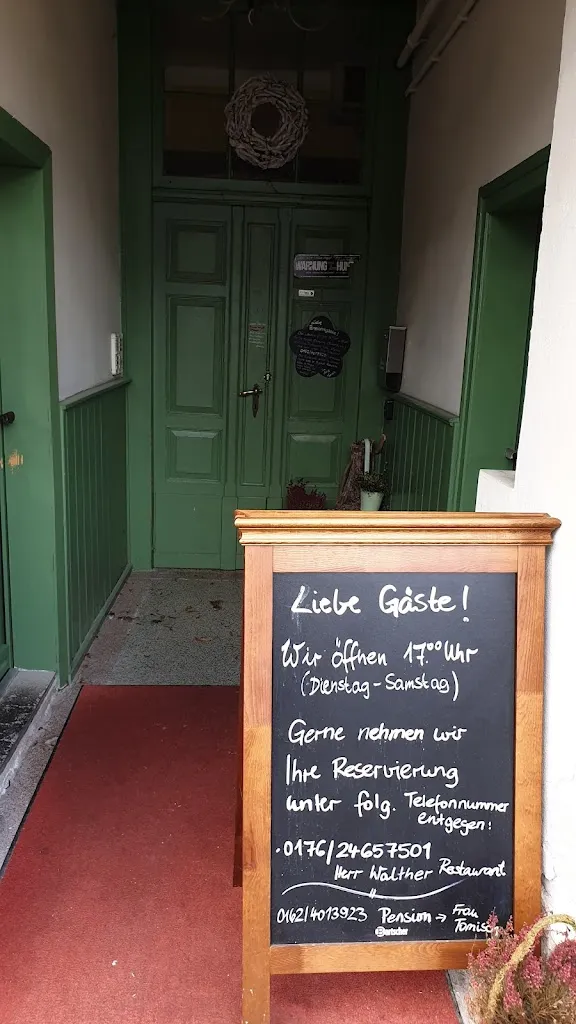 WARNUNG
Liebe Gäste!
Wir öffnen 17.⁰⁰ Uhr
(Dienstag-Samstag)
Gerne nehmen wir
Ihre Reservierung
unter folg. Telefonnummer
entgegen:
·0176/24657501
Herr Walther Restaurant
0162/4013923 Pension → Frau
Bartscher